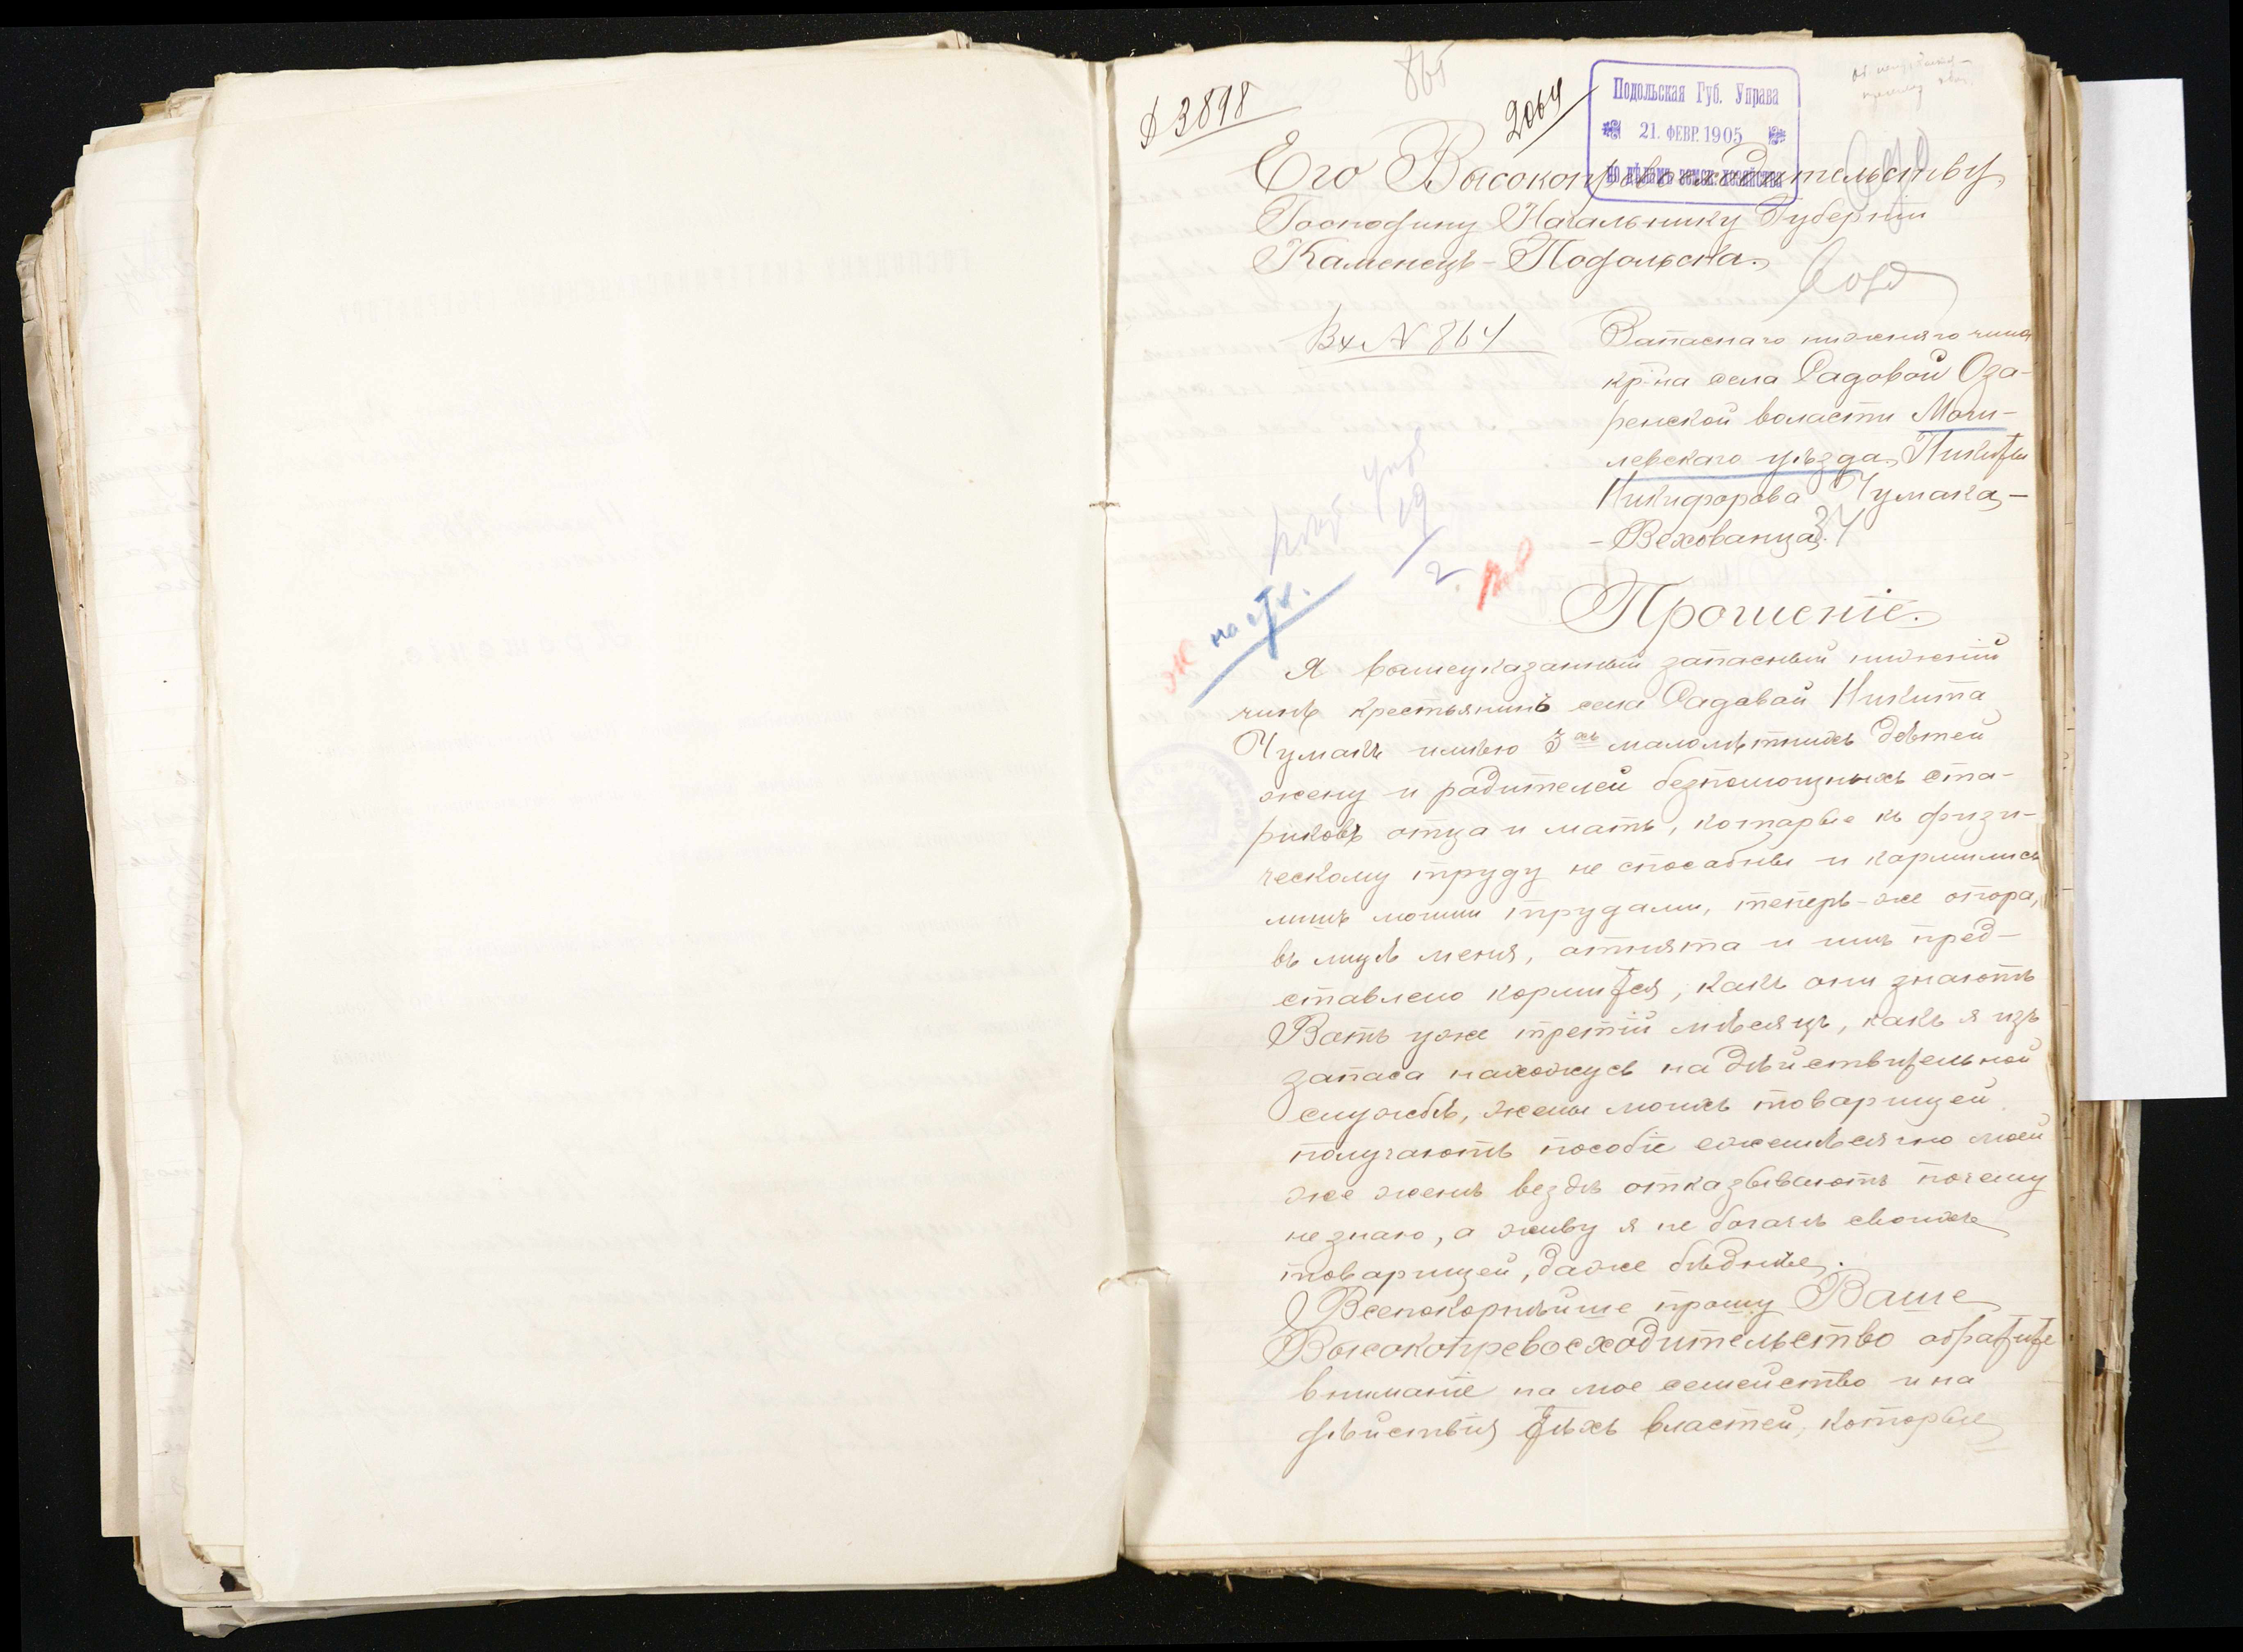 3898
2064
Подольская Губ. Управа
21. ФЕВР. 1905
по дѣламъ земск. хозяйства
Его Высокопревосходительству
Господину Начальнику Губерніи
Каменецъ-Подольска.
Вх № 864
Запаснаго нижняго чина
кр-на села Садовой Оза-
ренской воласти Моги-
левскаго уѣзда, Никиты
Никифорова Чумака-
-Вехованца.
34
19
2.
Прошеніе.
Я вышеуказанный запасный нижній
чинъ крестьянинъ села Садавой Никита
Чумакъ имѣю 3хъ малолѣтнихъ дѣтей
жену и радителей безпомощныхъ ста-
риковъ отца и мать, которые къ физи-
ческому труду не способны и кармились
лишь моими трудами, теперь-же опора,
въ лицѣ меня, отнята и имъ пред-
ставлено кормится, какъ они знаютъ
Вотъ уже третій мѣсяцъ, какъ я изъ
запаса нахожусь на дѣйствительной
службѣ, жены моихъ товарищей
получаютъ пособіе ежемѣсячно моей
же женѣ вездѣ отказываютъ почему
не знаю, а живу я не богачѣ своихъ
товарищей, даже бѣднѣе.
Всепокорнѣйше прошу Ваше
Высокопревосходительство обратите
вниманіе на мое семейство и на
дѣйствія тѣхъ властей, которые